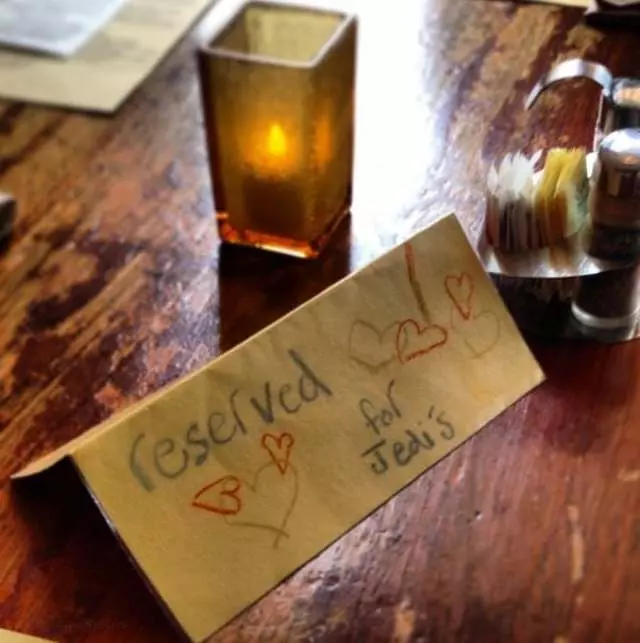 reserved
for
Jedi's